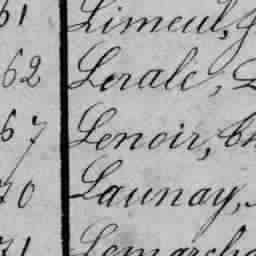 61 Limeul,
62 Lerale,
67 Lenoir,
70 Launay,
71 Lemarcha